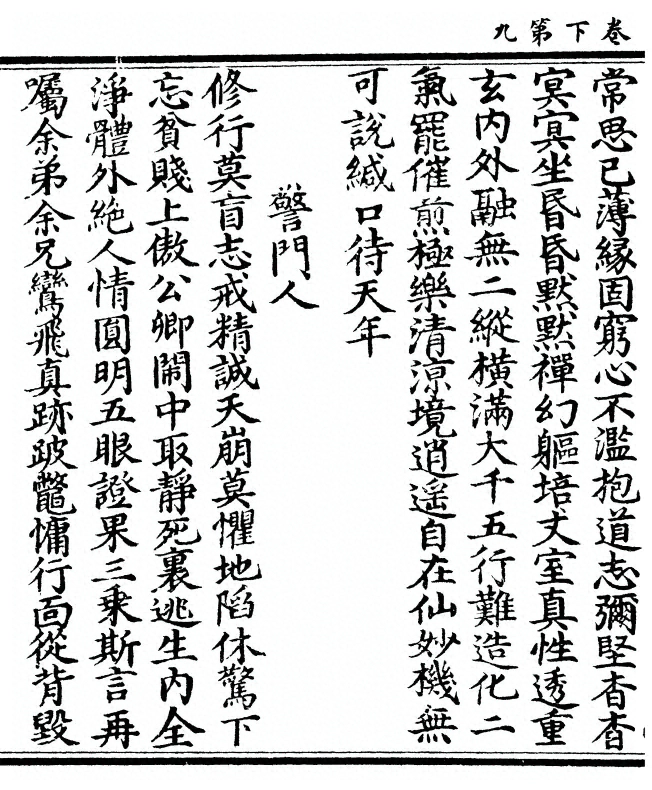 卷下第九
常思已薄緣固窮心不濫抱道志彌堅杳杳
冥冥坐昏昏默默禪幻軀培丈室真性透重
玄內外融無二縱橫滿大千五行難造化二
氣罷催煎極樂清涼境逍遥自在仙妙機無
可說緘口待天年
警門人
修行莫盲志戒精誠天崩莫懼地陷休驚下
忘貧賤上傲公卿鬧中取靜死裏逃生內全
淨體外絶人情圓明五眼證果三乗斯言再
囑余弟余兄鸞飛真跡跛鼈慵行面從背毀